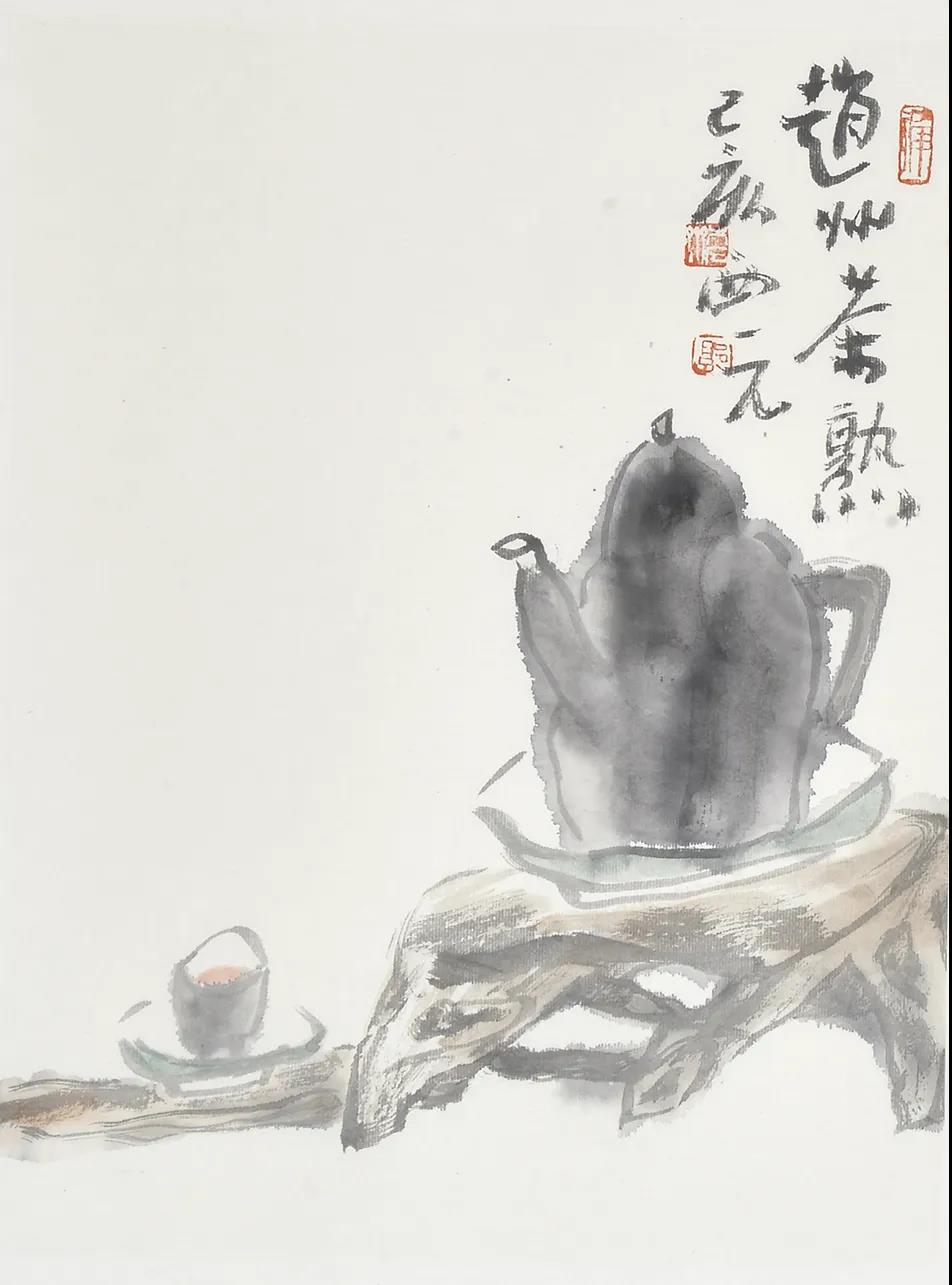 趙州茶熟
己亥西元